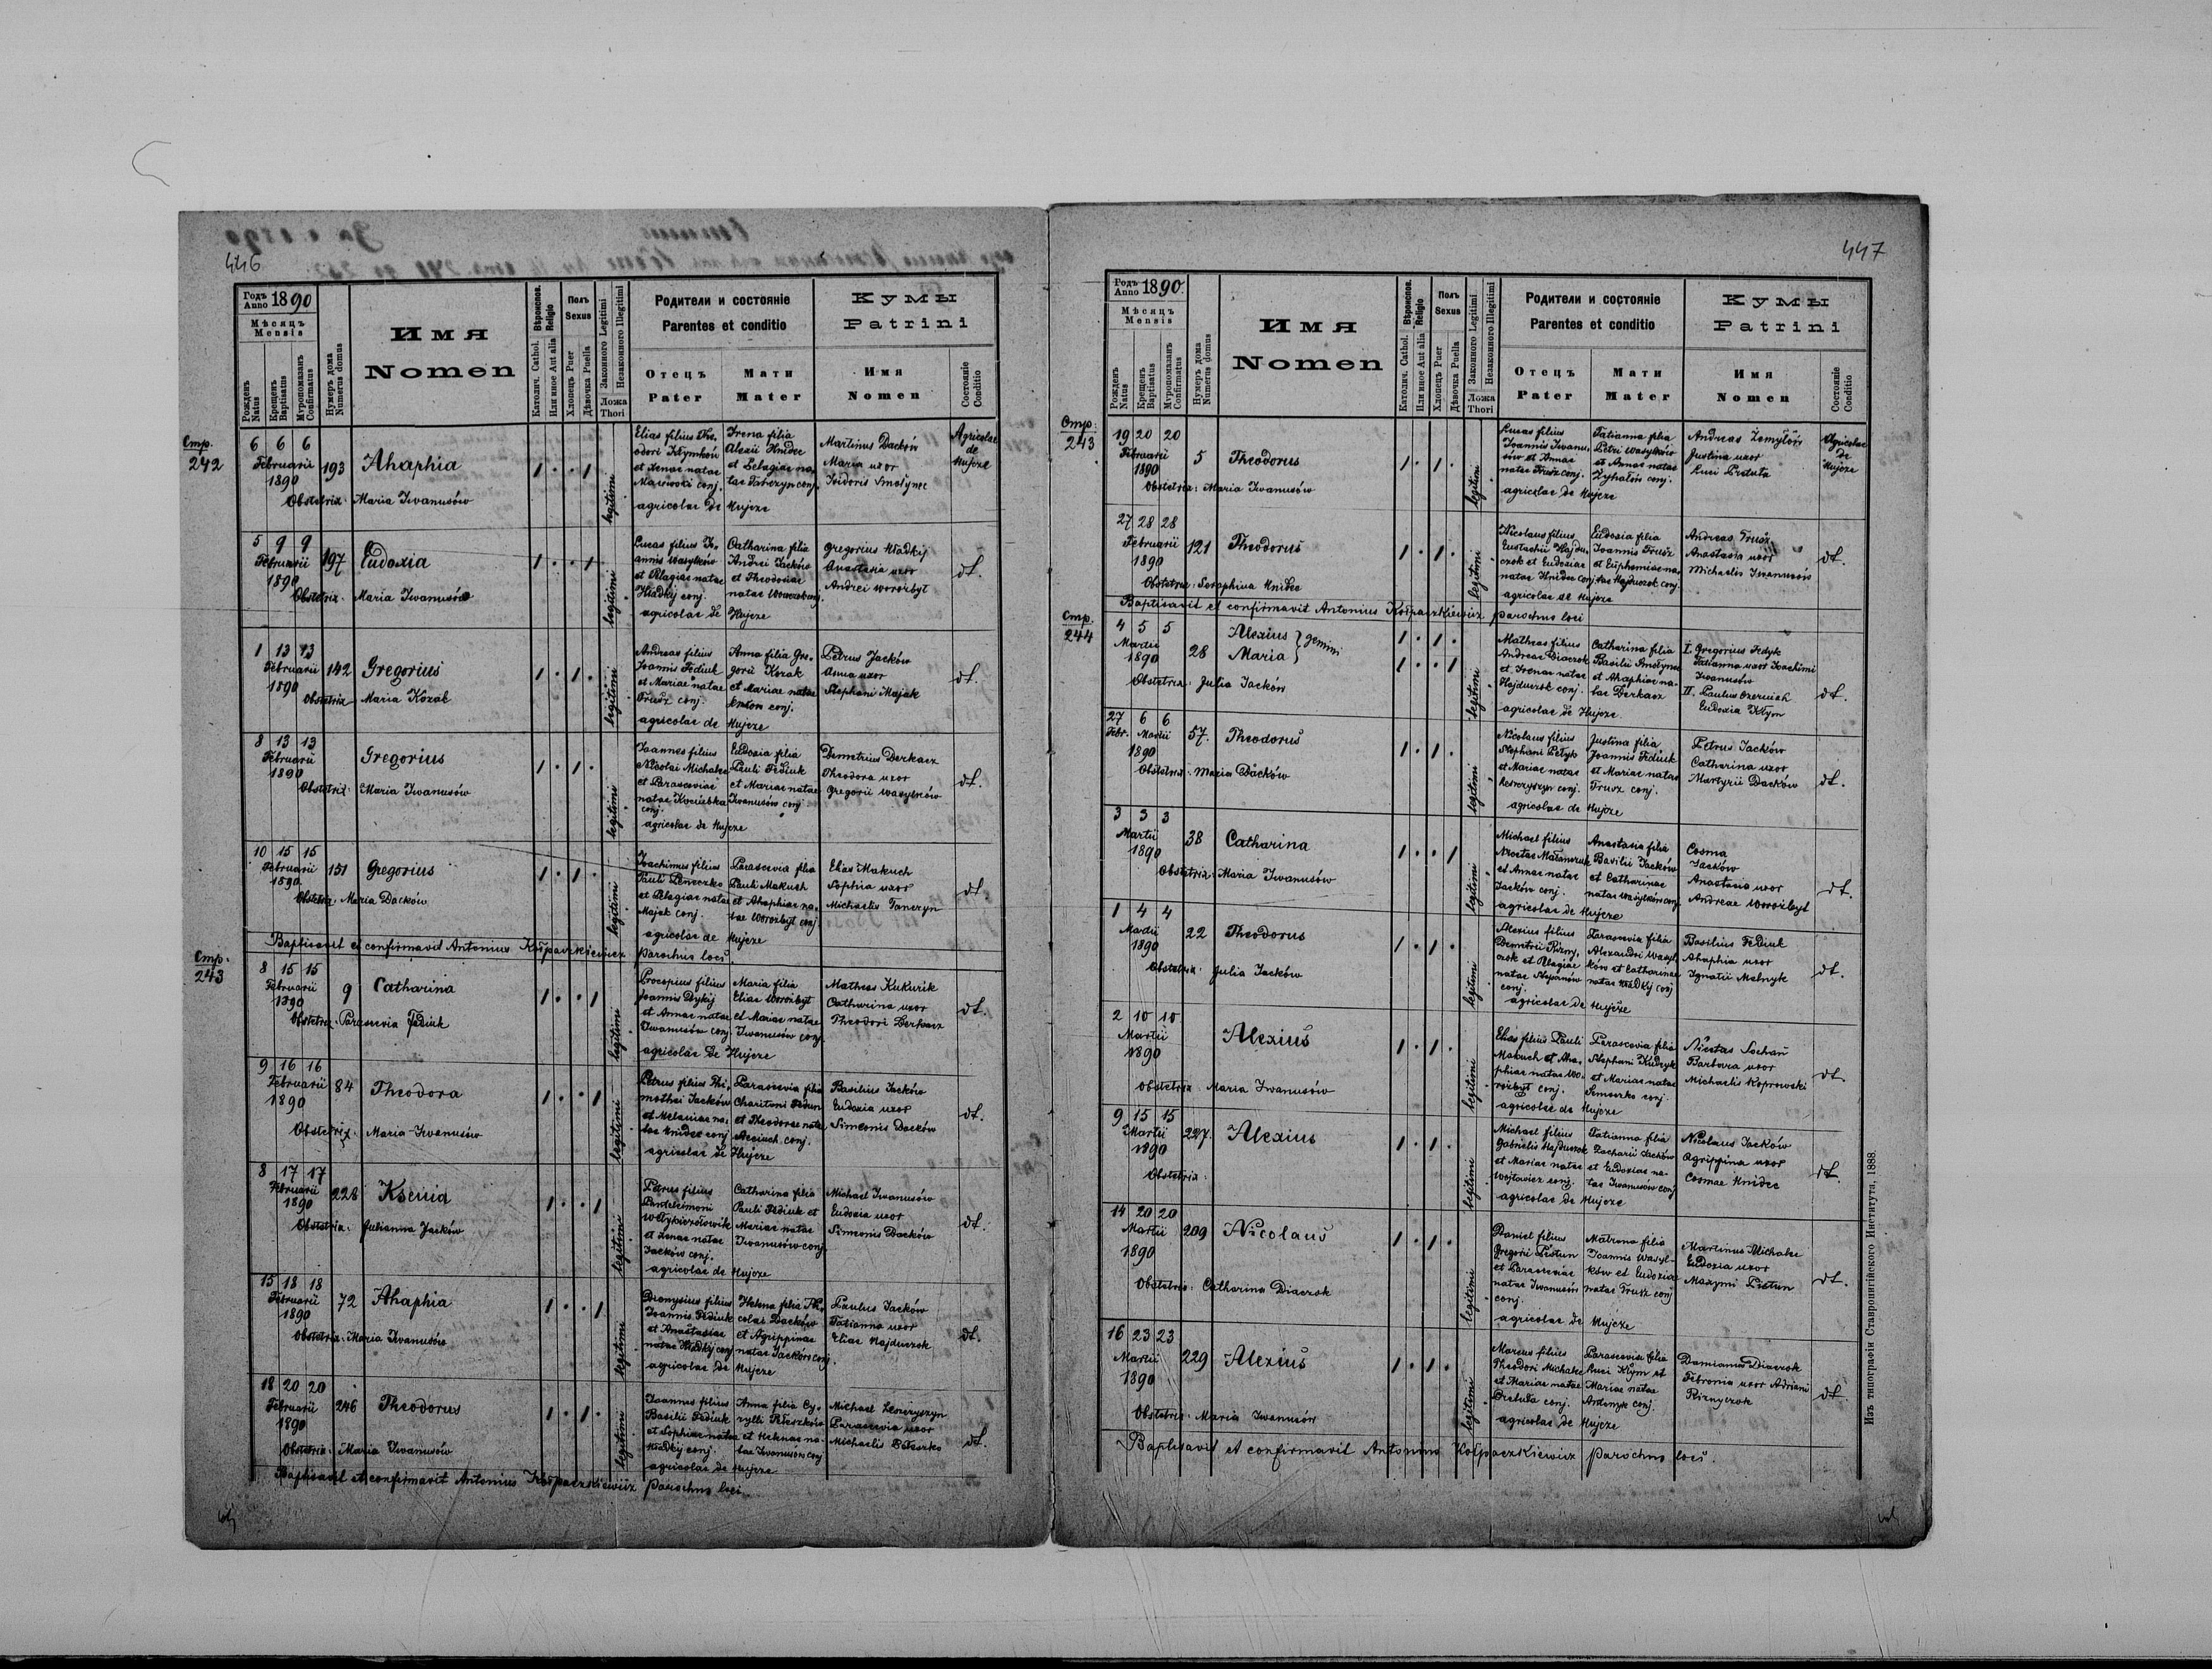 446
Годъ Anno 1890
Мѣсяцъ
Mensis
Рожденъ Natus
Крещенъ Baptisatus
Муропомазанъ Confirmatus
Нумеръ дома Numerus domus
Имя
Nomen
Вѣроиспов. Religio
Католич. Cathol.
Или иное Aut alia
Полъ Sexus
Хлопецъ Puer
Дѣвочка Puella
Законного Legitimi
Незаконного Illegitimi
Ложа Thori
Родители и состояніе
Parentes et conditio
Отецъ
Pater
Мати
Mater
Кумы
Patrini
Имя
Nomen
Состояніе Conditio
Стр. 242
6 6 6 Februarii 1890
193
Ahaphia
legitimi
Elias filius The-
odori
et Xenae natae
conj.
agricolae de Hujcze
Irena filia
Alexii Hnidec
et Pelagiae na-
tae conj.
Martinus Dacków
Maria uxor
Isidoris Smolynec
Agricolae
de
Hujcze
Obstetrix: Maria Iwanusów
5 9 9 Februarii 1890
197
Eudoxia
legitimi
Lucas filius Jo-
annis Wasylków
et Pelagiae natae
Hladkij conj.
agricolae de Hujcze
Catharina filia
Andrei Jacków
et Theodosiae
natae
Gregorius Hladkij
Anastasia uxor
Andrei Worożbyt
dt.
Obstetrix: Maria Iwanusów
1 13 13 Februarii 1890
142
Gregorius
legitimi
Andreas filius
Joannis Fediuk
et Mariae natae
Trusz conj.
agricolae de Hujcze
Anna filia Gre-
gorii Kozak
et Mariae natae
conj.
Petrus Jacków
Anna uxor
Stephani Majak
dt.
Obstetrix Maria Kozak
8 13 13 Februarii 1890
Gregorius
legitimi
Joannes filius
Nicolai Michalec
et Parasceviae
natae
conj.
agricolae de Hujcze
Eudoxia filia
Pauli Fediuk
et Mariae natae
Iwanusów conj.
Demetrius Derkacz
Theodora uxor
Gregorii Wasylków
dt.
Obstetrix: Maria Iwanusów
10 15 15 Februarii 1890
151
Gregorius
legitimi
Joachimus filius
Pauli
et Pelagiae natae
Majak conj.
agricolae de Hujcze
Parascevia filia
Pauli Makuch
et Ahaphiae na-
tae Worożbyt conj.
Elias Makuch
Sophia uxor
Michaelis
dt.
Obstetrix Maria Dacków
Baptisavit et confirmavit Antonius Kołpaczkiewicz parochus loci
Стр. 243
8 15 15 Februarii 1890
9
Catharina
legitimi
Procopius filius
Joannis Dykij
et Annae natae
Iwanusów conj.
agricolae de Hujcze
Maria filia
Eliae Worożbyt
et Mariae natae
Iwanusów conj.
Matheas Kukurik
Catharina uxor
Theodori Derkacz
dt.
Obstetrix Parascevia Fediuk
9 16 16 Februarii 1890
84
Theodora
legitimi
Petrus filius Thi-
mothei Jacków
et Melaniae na-
tae Hnidec conj.
agricolae de Hujcze
Parascevia filia
Charitoni
et Theodorae natae
conj.
Basilius Jacków
Eudoxia uxor
Simeonis Dacków
dt.
Obstetrix: Maria Iwanusów
8 17 17 Februarii 1890
228
Ksenia
legitimi
Petrus filius
Panteleimoni
et Xenae natae
Jacków conj.
agricolae de Hujcze
Catharina filia
Pauli Fediuk et
Mariae natae
Iwanusów conj.
Michael Iwanusów
Eudoxia uxor
Simeonis Dacków
dt.
Obstetrix: Julianna Jacków
15 18 18 Februarii 1890
72
Ahaphia
legitimi
Dionysius filius
Joannis Fediuk
et Anastasiae
natae Hladkij conj.
agricolae de Hujcze
Helena filia Ni-
colai Dacków
et Agrippinae
natae Jacków conj.
Paulus Jacków
Tatianna uxor
Eliae Hajduczok
dt.
Obstetrix: Maria Iwanusów
18 20 20 Februarii 1890
246
Theodorus
legitimi
Joannes filius
Basilii Fediuk
et Sophiae natae
Hladkij conj.
agricolae de Hujcze
Anna filia Cy-
rylli
et Helenae na-
tae Iwanusów conj.
Michael
Parascevia uxor
Michaelis
dt.
Obstetrix: Maria Iwanusów
Baptisavit et confirmavit Antonius Kołpaczkiewicz parochus loci
447
Годъ Anno 1890.
Мѣсяцъ
Mensis
Рожденъ Natus
Крещенъ Baptisatus
Муропомазанъ Confirmatus
Нумеръ дома Numerus domus
Имя
Nomen
Вѣроиспов. Religio
Католич. Cathol.
Или иное Aut alia
Полъ Sexus
Хлопецъ Puer
Дѣвочка Puella
Законного Legitimi
Незаконного Illegitimi
Ложа Thori
Родители и состояніе
Parentes et conditio
Отецъ
Pater
Мати
Mater
Кумы
Patrini
Имя
Nomen
Состояніе Conditio
Стр. 243
19 20 20 Februarii 1890
5
Theodorus
legitimi
Lucas filius
Joannis Iwanu-
sów et Annae
natae Trusz conj.
agricolae de Hujcze
Tatianna filia
Petri Wasylków
et Annae natae
conj.
Andreas
Justina uxor
Luci Pretuta
Agricolae
de
Hujcze
Obstetrix: Maria Iwanusów
27 28 28 Februarii 1890
121
Theodorus
legitimi
Nicolaus filius
Eustachii Hajdu-
czok et Eudoxiae
natae Hnidec conj.
agricolae de Hujcze
Eudoxia filia
Joannis Trusz
et Euphemiae na-
tae Hajduczok conj.
Andreas Trusz
Anastasia uxor
Michaelis Iwanusów
dt.
Obstetrix: Seraphina Hnidec
Baptisavit et confirmavit Antonius Kołpaczkiewicz parochus loci
Стр. 244
4 5 5 Martii 1890
28
Alexius
Maria } gemini
legitimi
Matheas filius
Andreae Diaczok
et Irenae natae
Hajduczok conj.
agricolae de Hujcze
Catharina filia
Basilii Smolynec
et Ahaphiae na-
tae Derkacz
I. Gregorius Fedyk
Tatianna uxor Joachimi
Iwanusów
II. Paulus
Eudoxia Kłym
dt.
Obstetrix: Julia Jacków
27 Febr. 6 6 Martii 1890
57.
Theodorus
legitimi
Nicolaus filius
Stephani Petyk
et Mariae natae
conj.
agricolae de Hujcze
Justina filia
Joannis Fediuk
et Mariae natae
Trusz conj.
Petrus Jacków
Catharina uxor
Martyrii Dacków
dt.
Obstetrix: Maria Dacków
3 3 3 Martii 1890
38
Catharina
legitimi
Michael filius
Nicetae
et Annae natae
Jacków conj.
agricolae de Hujcze
Anastasia filia
Basilii Jacków
et Catharinae
natae Wasylków conj.
Cosma
Jacków
Anastasia uxor
Andreae Worożbyt
dt.
Obstetrix: Maria Iwanusów
1 4 4 Martii 1890
22
Theodorus
legitimi
Alexius filius
Demetrii Rizny-
czok et Pelagiae
natae Stepanów
conj.
agricolae de Hujcze
Parascevia filia
Alexandri Wasyl-
ków et Catharinae
natae Hladkij conj.
Basilius Fediuk
Ahaphia uxor
Ignatii Melnyk
dt.
Obstetrix: Julia Jacków
2 10 10 Martii 1890
Alexius
legitimi
Elias filius Pauli
Makuch et Aha-
phiae natae Wo-
rożbyt conj.
agricolae de Hujcze
Parascevia filia
Stephani
et Mariae natae
conj.
Nicetas Sochan
Barbara uxor
Michaelis Koprowski
dt.
Obstetrix Maria Iwanusów
9 15 15 Martii 1890
227.
Alexius
legitimi
Michael filius
Gabrielis Hajduczok
et Mariae natae
Wojtowicz conj.
agricolae de Hujcze
Tatianna filia
Zacharii Jacków
et Eudoxiae na-
tae Iwanusów conj.
Nicolaus Jacków
Agrippina uxor
Cosmae Hnidec
dt.
Obstetrix:
14 20 20 Martii 1890
209
Nicolaus
legitimi
Daniel filius
Gregorii Pistun
et Parasceviae
natae Iwanusów
conj.
agricolae de Hujcze
Matrona filia
Joannis Wasyl-
ków et Eudoxiae
natae Trusz conj.
Martinus Michalec
Eudoxia uxor
Maxymi Pistun
dt.
Obstetrix: Catharina Diaczok
16 23 23 Martii 1890
229
Alexius
legitimi
Marcus filius
Theodori Michalec
et Mariae natae
Pretuta conj.
agricolae de Hujcze
Parascevia filia
Luci Kłym et
Mariae natae
conj.
Damianus Diaczok
Febronia uxor Adriani
Riznyczok
dt.
Obstetrix: Maria Iwanusów
Baptisavit et confirmavit Antonius Kołpaczkiewicz parochus loci.
Изъ типографіи Ставропигійского Института, 1888.